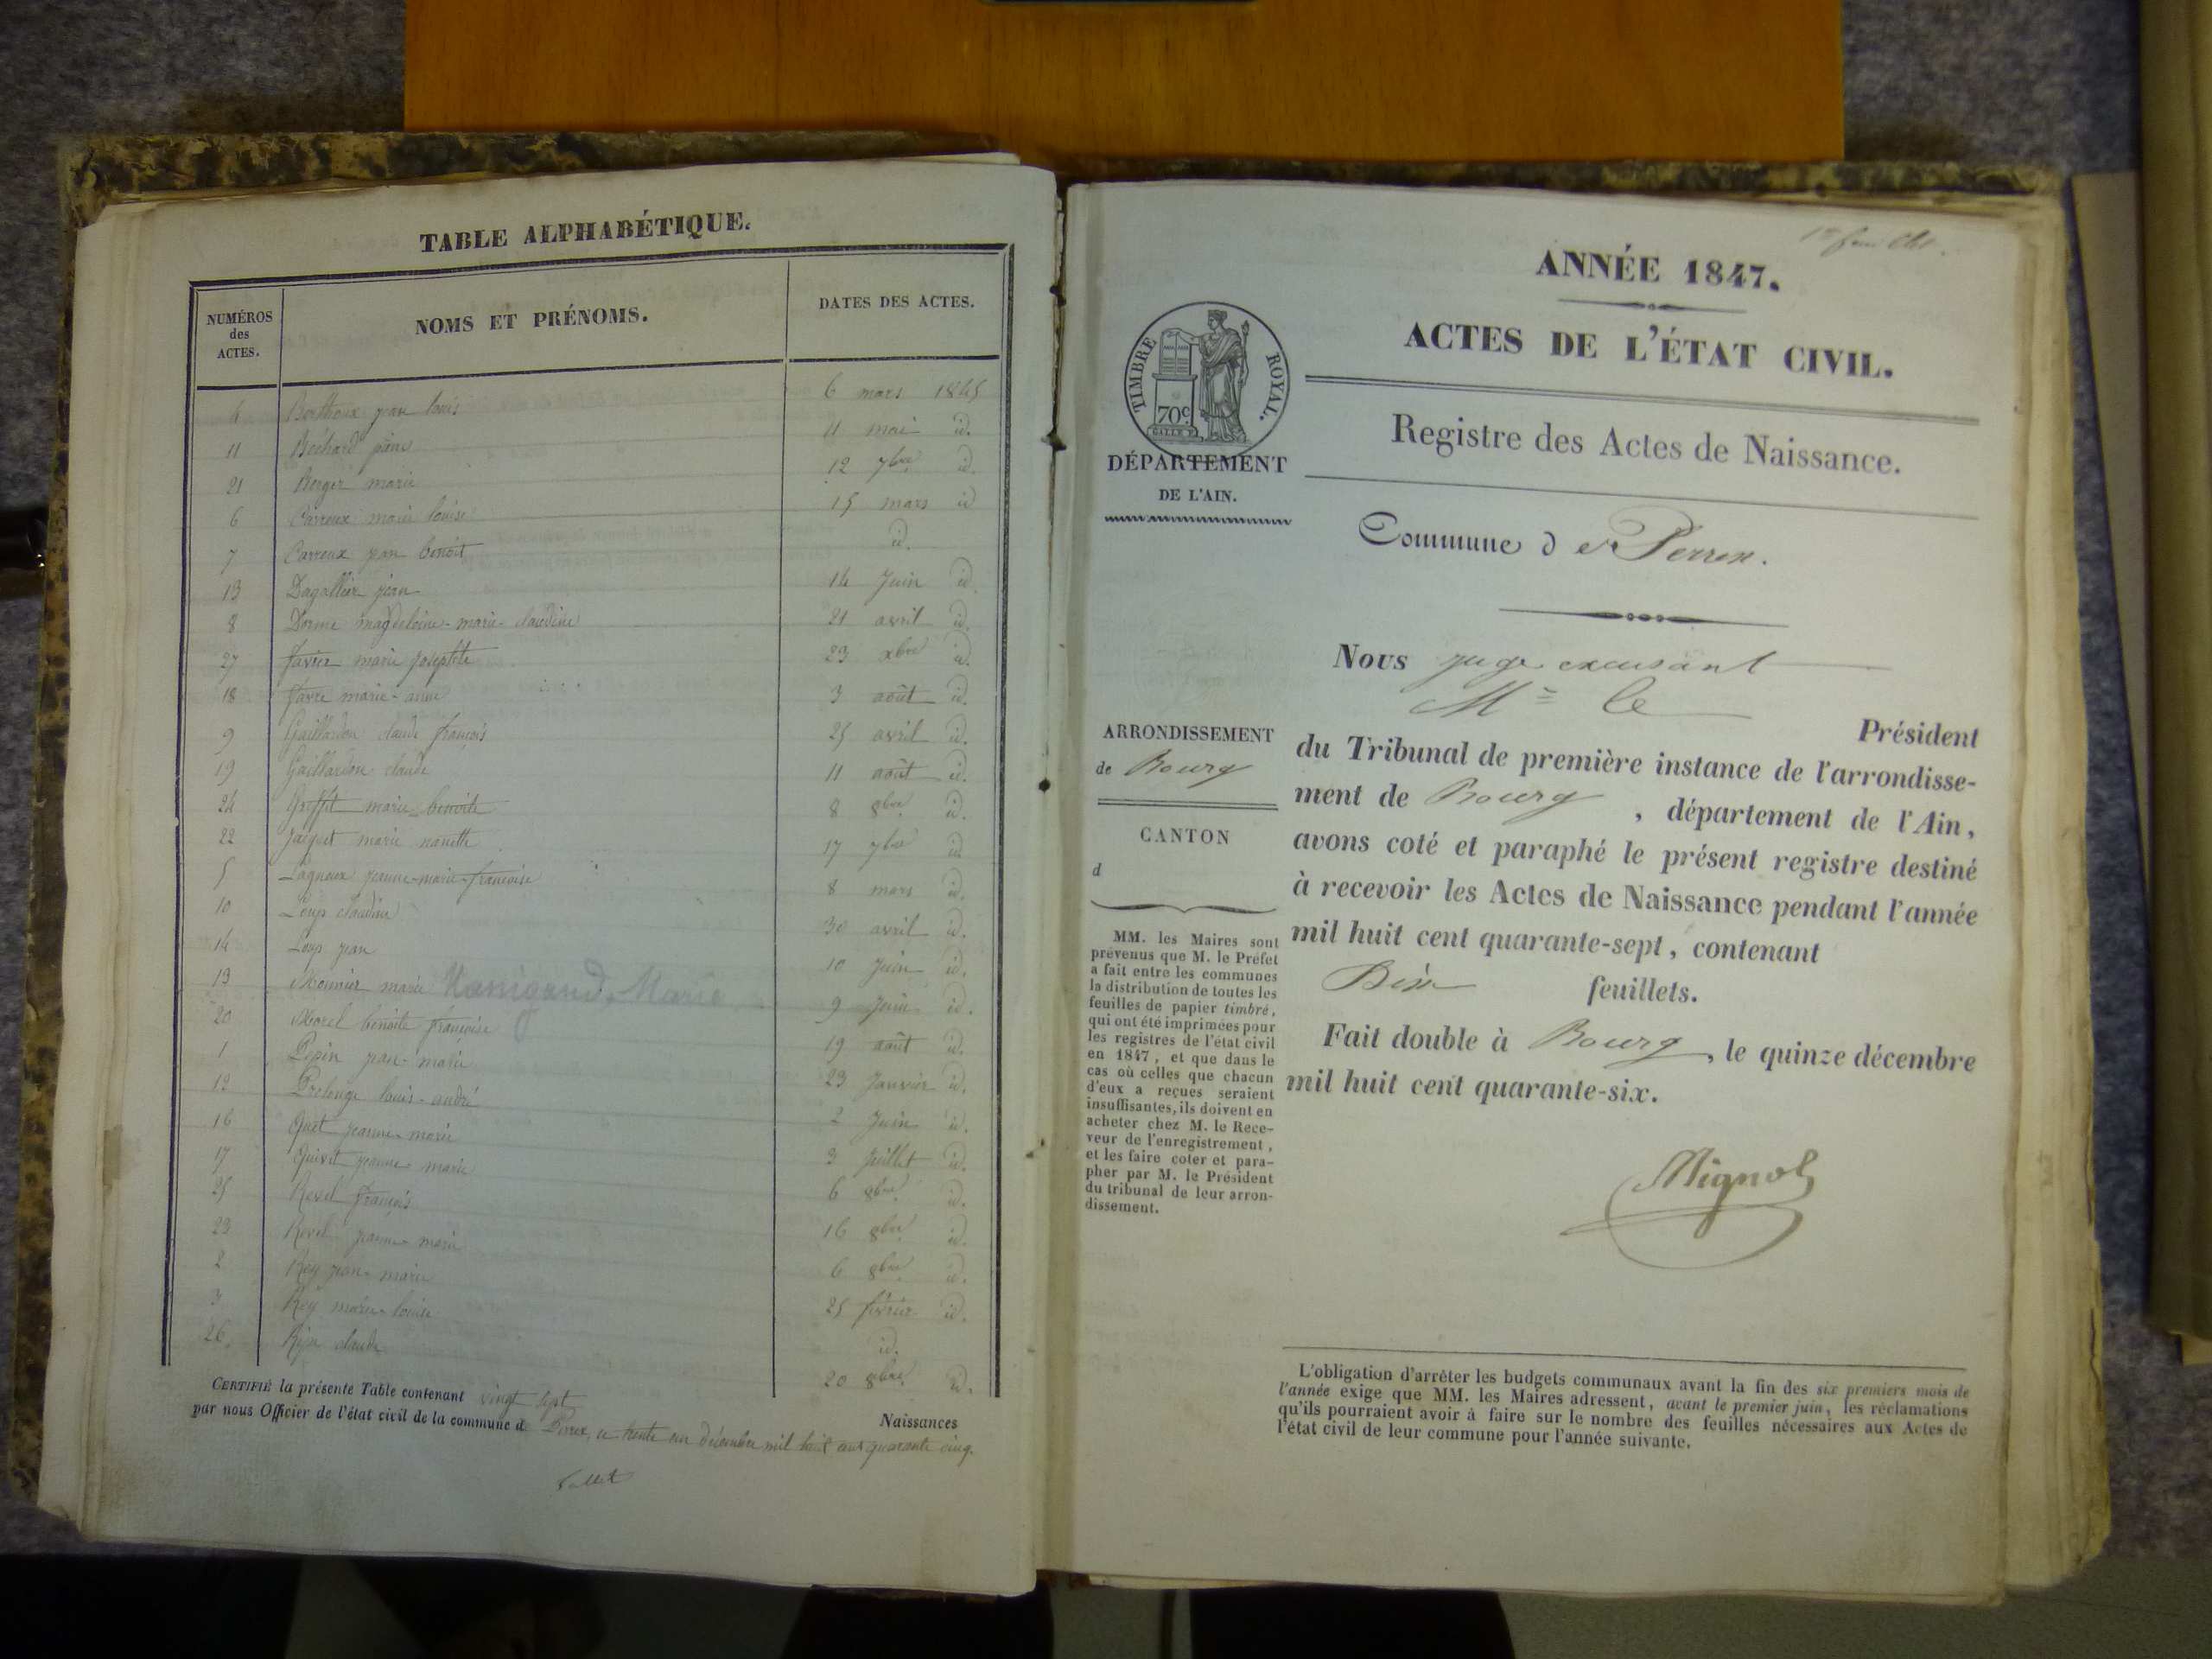 TABLE ALPHABÉTIQUE.
NUMÉROS
des
ACTES.
NOMS ET PRÉNOMS.
DATES DES ACTES.
6 mars 1845
11 Bérhard
11 mai id.
21 Berger marie
12 7bre id.
6 Carreux marie louise
15 mars id
7 Carreux jean benoit
id.
13 Dagallier jean
14 Juin id
8 Dorme magdeleine-marie-claudine
21 avril id.
27 favier marie josephte
23 xbre id.
18 favre marie-anne
3 août id.
9 Gaillardon claude françois
25 avril id.
19 Gaillardon claude
11 août id.
24 marie-benoite
8 8bre id.
22 Jacquet marie
17 7bre id.
5 jeanne-marie-françoise
8 mars id.
10 Loup claudine
30 avril id.
14 Loup jean
10 Juin id.
13 Monnier marie Manigand Marie
9 Juin id.
20 Morel benoite françoise
19 août id.
1 Pepin jean-marie
23 Janvier id.
12 louis-andré
2 Juin id.
16 jeanne-marie
3 Juillet id.
17 jeanne marie
6 id.
25 Revel françois
16 8bre id.
23 Revel jeanne-marie
6 8bre id.
2 Rey jean-marie
25 février id.
3 Rey marie-louise
id.
26. claude
20 id.
CERTIFIÉ la présente Table contenant vingt sept
Naissances
par nous Officier de l'état civil de la commune d Perrex, ce trente un décembre mil huit cent quarante cinq.
ANNÉE 1847.
ACTES DE L'ÉTAT CIVIL.
TIMBRE ROYAL.
70c
Registre des Actes de Naissance.
DÉPARTEMENT
DE L'AIN.
Commune de Perrex.
Nous juge excusant
Mr le
Président
ARRONDISSEMENT
de Bourg
CANTON
d
MM. les Maires sont
prévenus que M. le Préfet
a fait entre les communes
la distribution de toutes les
feuilles de papier timbré,
qui ont été imprimées pour
les registres de l'état civil
en 1847, et que dans le
cas où celles que chacun
d'eux a reçues seraient
insuffisantes, ils doivent en
acheter chez M. le Rece-
veur de l'enregistrement,
et les faire coter et para-
pher par M. le Président
du tribunal de leur arron-
dissement.
du Tribunal de première instance de l'arrondisse-
ment de Bourg, département de l'Ain,
avons coté et paraphé le présent registre destiné
à recevoir les Actes de Naissance pendant l'année
mil huit cent quarante-sept, contenant
Dix feuillets.
Fait double à Bourg, le quinze décembre
mil huit cent quarante-six.
Mignot
L'obligation d'arrêter les budgets communaux avant la fin des six premiers mois de
l'année exige que MM. les Maires adressent, avant le premier juin, les réclamations
qu'ils pourraient avoir à faire sur le nombre des feuilles nécessaires aux Actes de
l'état civil de leur commune pour l'année suivante.